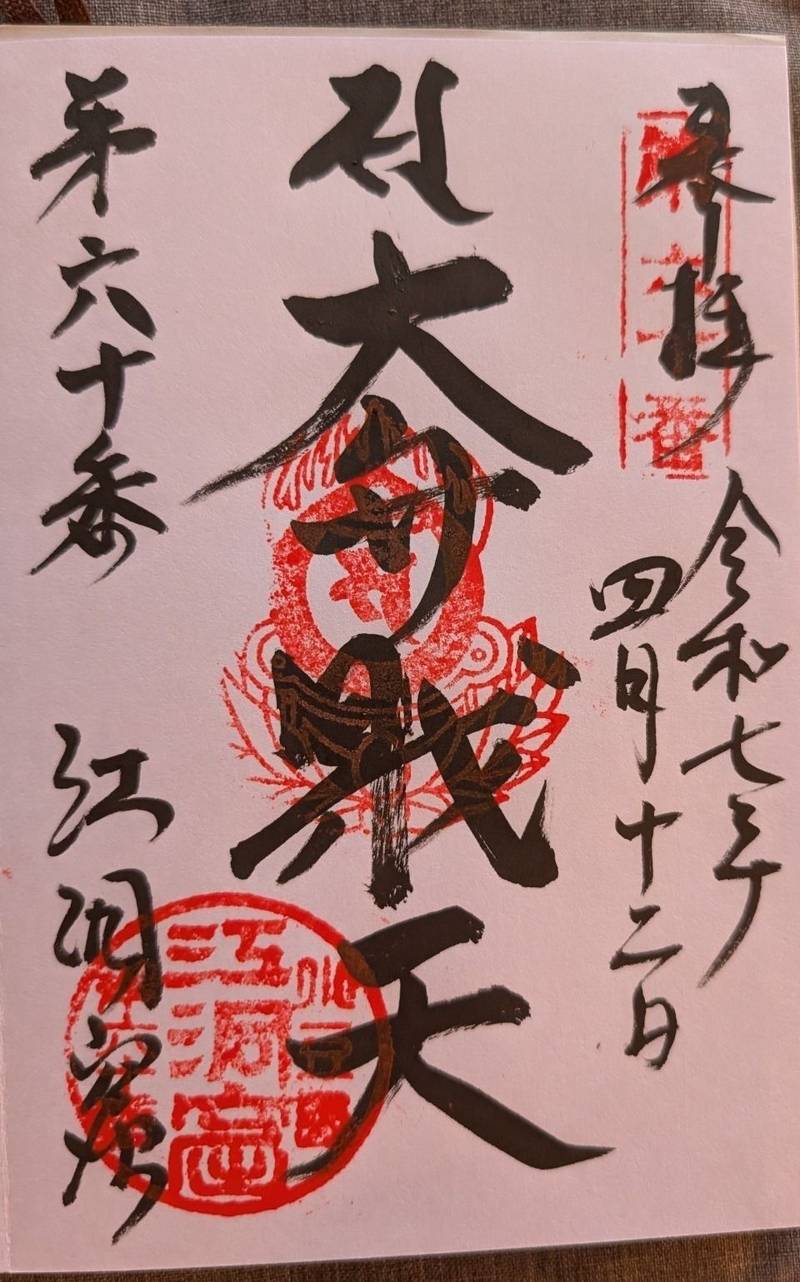 奉拝
令和七年
四月十二日
大弁財天
第六十番
江洞窟
江洞窟